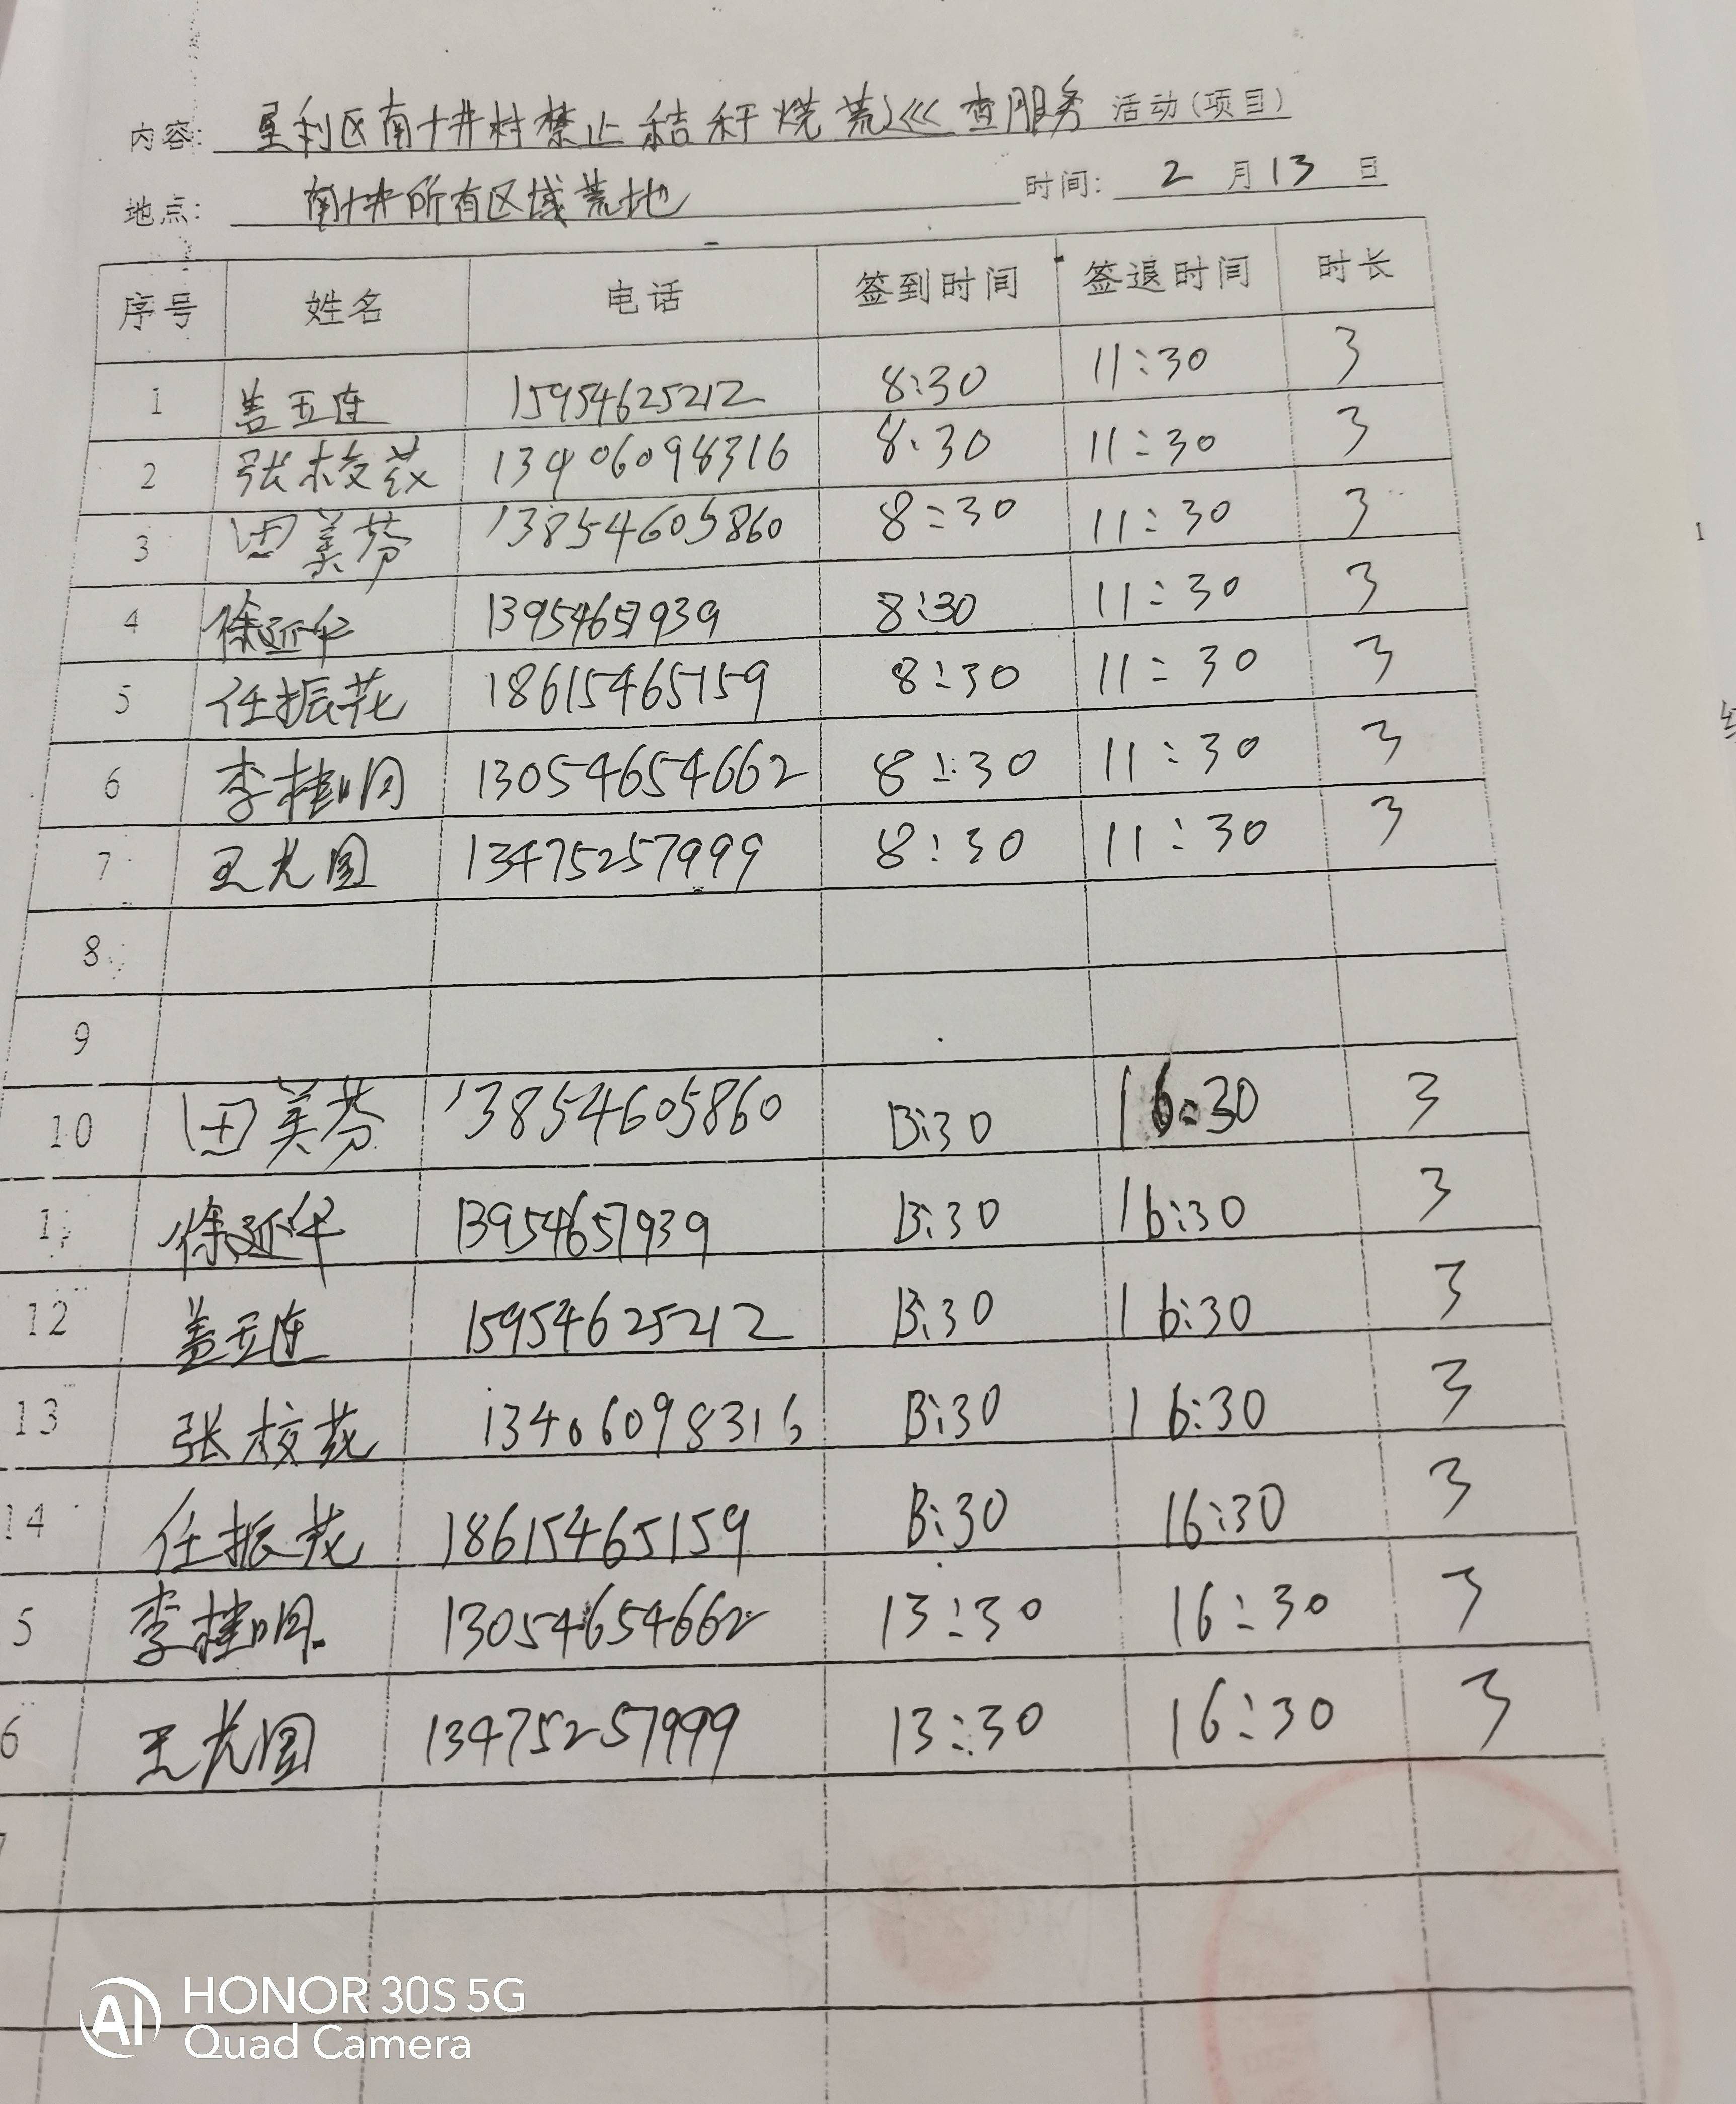 内容: 垦利区南十井村禁止秸秆烧荒巡查服务 活动(项目)
地点: 南十井所有区域荒地 时间: 2 月 13 日
序号 姓名 电话 签到时间 签退时间 时长
1 盖玉连 15954625212 8:30 11:30 3
2 张校花 13406098316 8:30 11:30 3
3 田美芬 13854605860 8:30 11:30 3
4 徐延华 13954657939 8:30 11:30 3
5 任振花 18615465159 8:30 11:30 3
6 李桂明 13054654662 8:30 11:30 3
7 王光图 13475257999 8:30 11:30 3
8
9
10 田美芬 13854605860 13:30 16:30 3
11 徐延华 13954657939 13:30 16:30 3
12 盖玉连 15954625212 13:30 16:30 3
13 张校花 13406098316 13:30 16:30 3
14 任振花 18615465159 13:30 16:30 3
5 李桂明 13054654662 13:30 16:30 3
6 王光图 13475257999 13:30 16:30 3
AI HONOR 30S 5G
Quad Camera